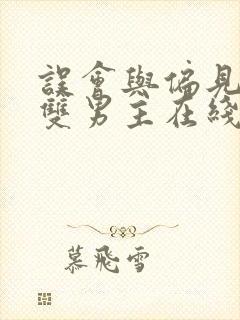 誤會與偏見
雙男主在綫
慕飛雪